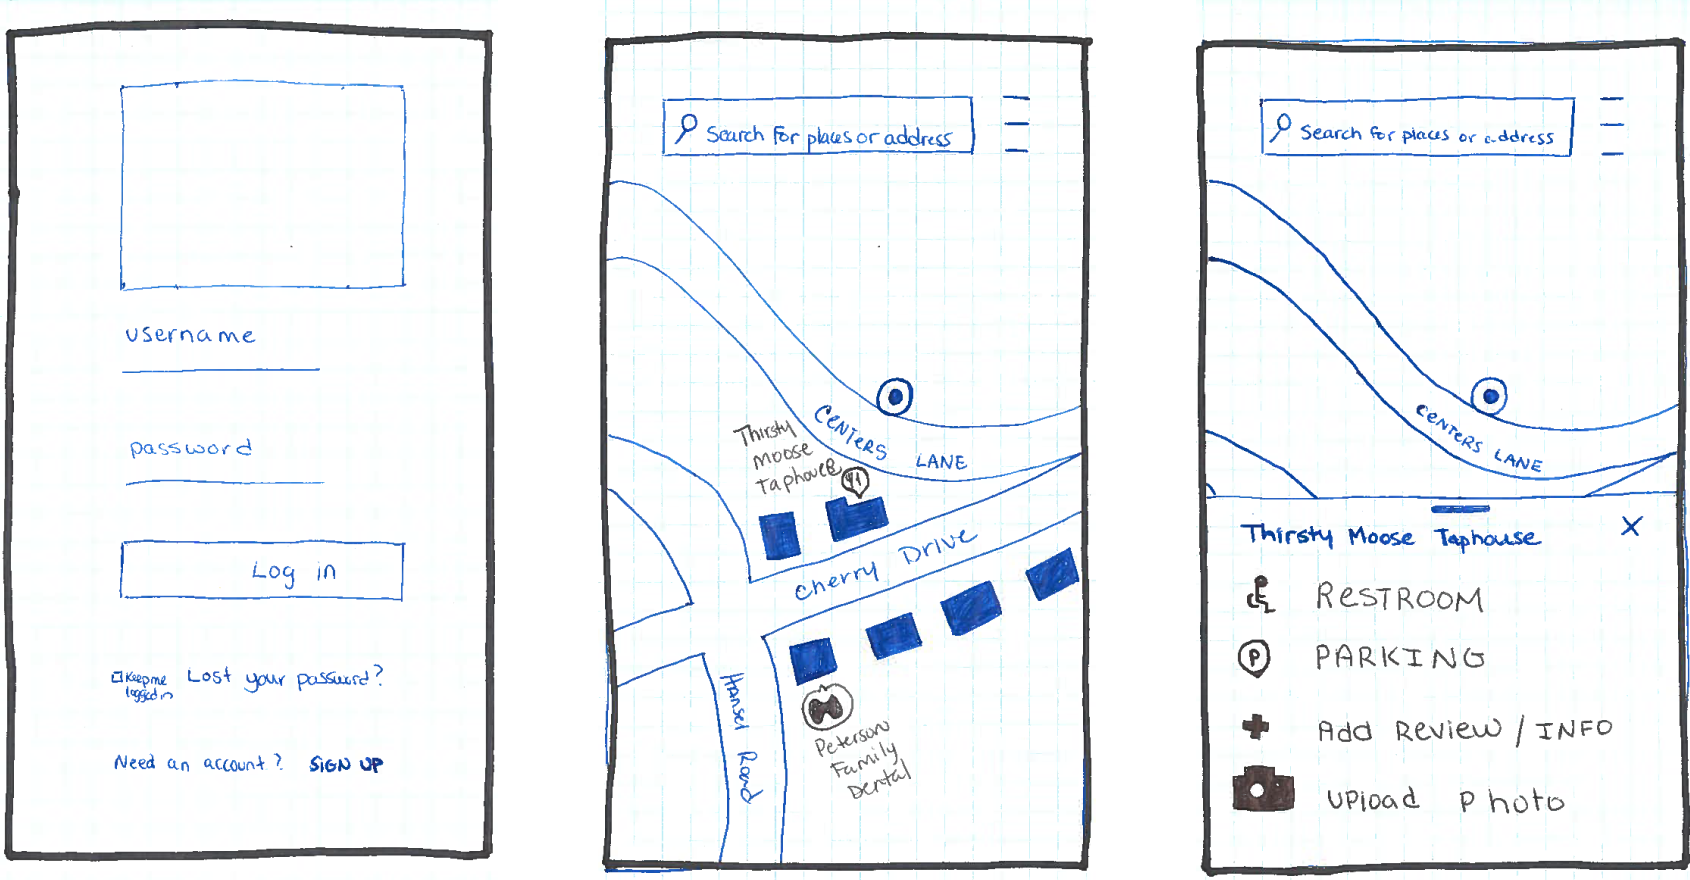 username
password
Log in
Keep me
logged in
Lost your password?
Need an account? SIGN UP
Search for places or address
CENTERS LANE
Thirsty
Moose
Taphouse
Cherry Drive
Hansel Road
Peterson
Family
Dental
Search for places or address
CENTERS LANE
Thirsty Moose Taphouse X
RESTROOM
P PARKING
Add Review / INFO
Upload Photo